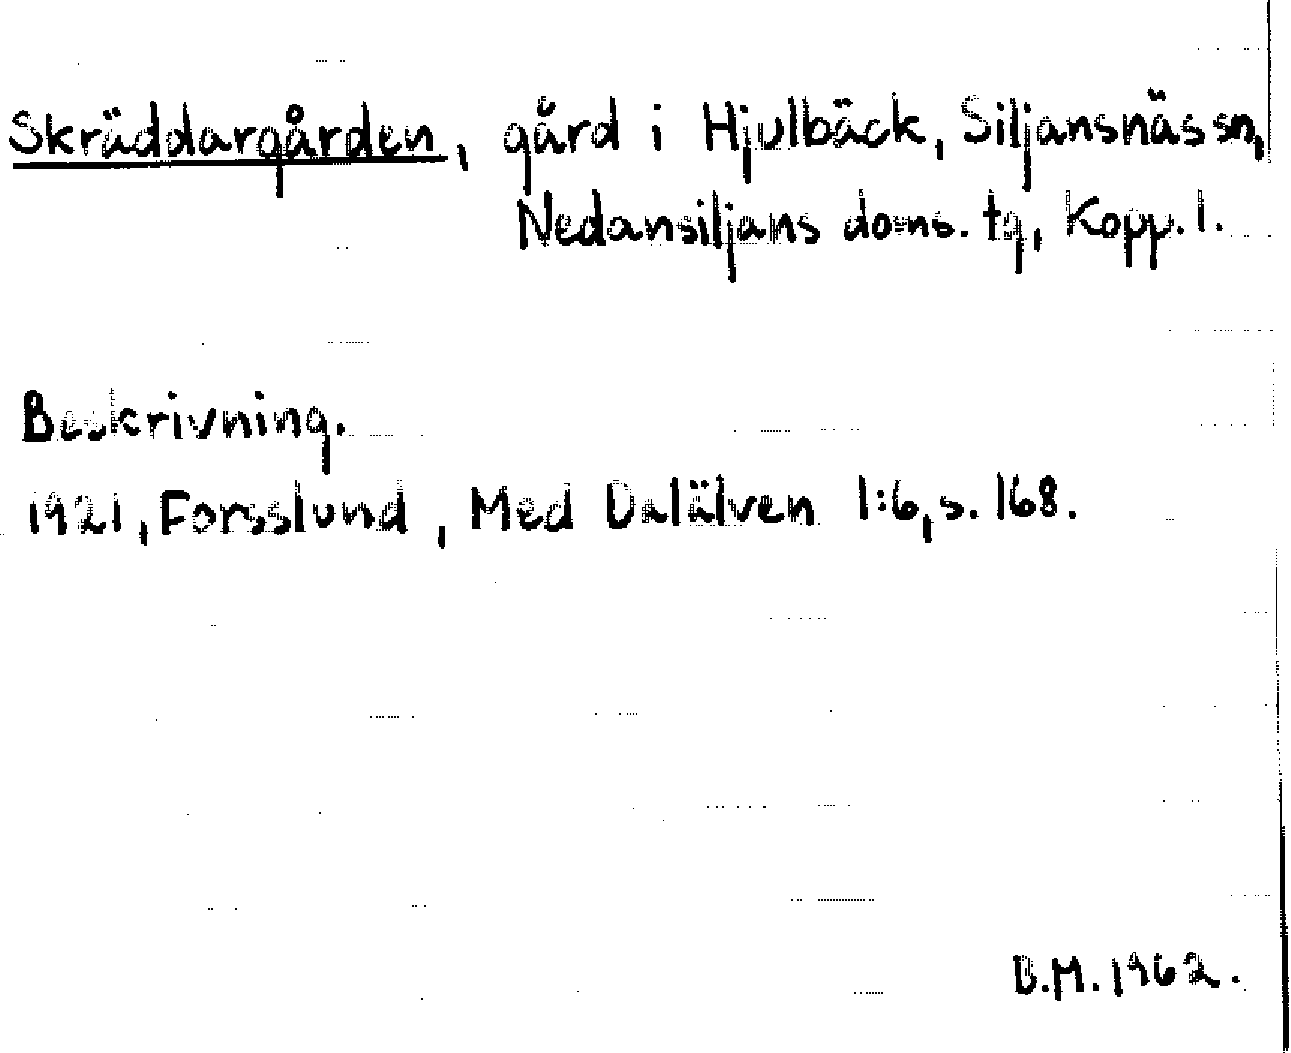 Skräddargården, gård i Hjulbäck, Siljansnäs sn,
Nedansiljans doms. tg, Kopp. l.
Beskrivning.
1921, Forsslund, Med Dalälven 1:6, s. 168.
B.M. 1962.